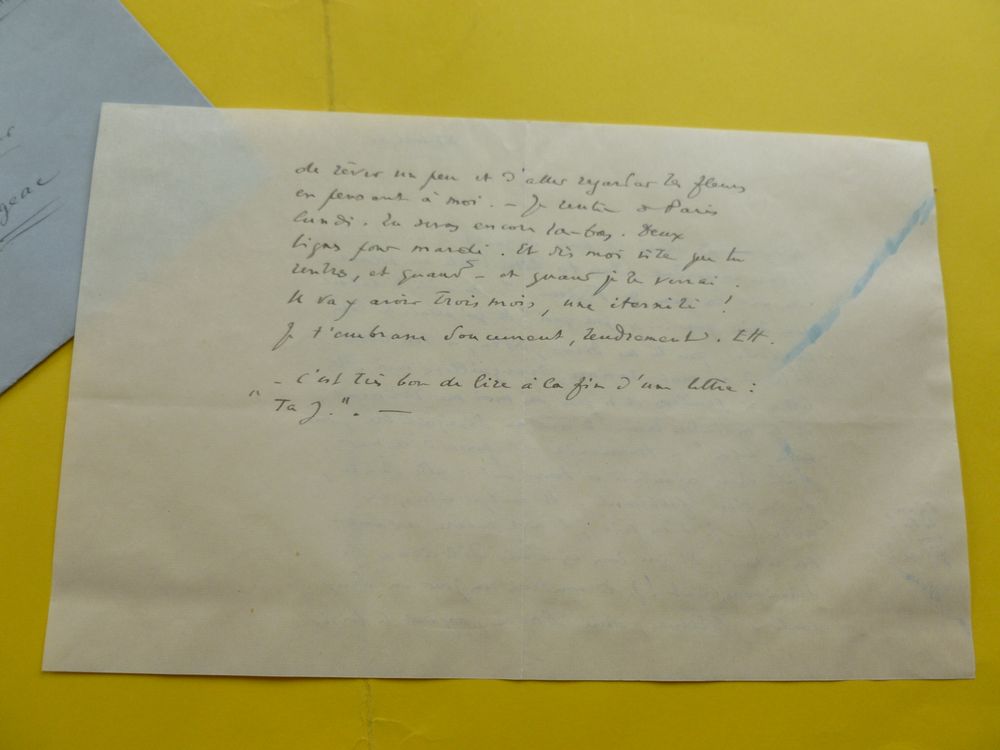 de rêver un peu et d'aller regarder les fleurs
en pensant à moi. – Je rentre à Paris
lundi. Tu seras encore là-bas. Deux
lignes pour mardi. Et dis moi vite que tu
rentres, et quand – et quand je te verrai.
Il va y avoir trois mois, une éternité !
Je t'embrasse doucement, tendrement.
– C'est très bon de lire à la fin d'une lettre :
" Ta J.". —
geac